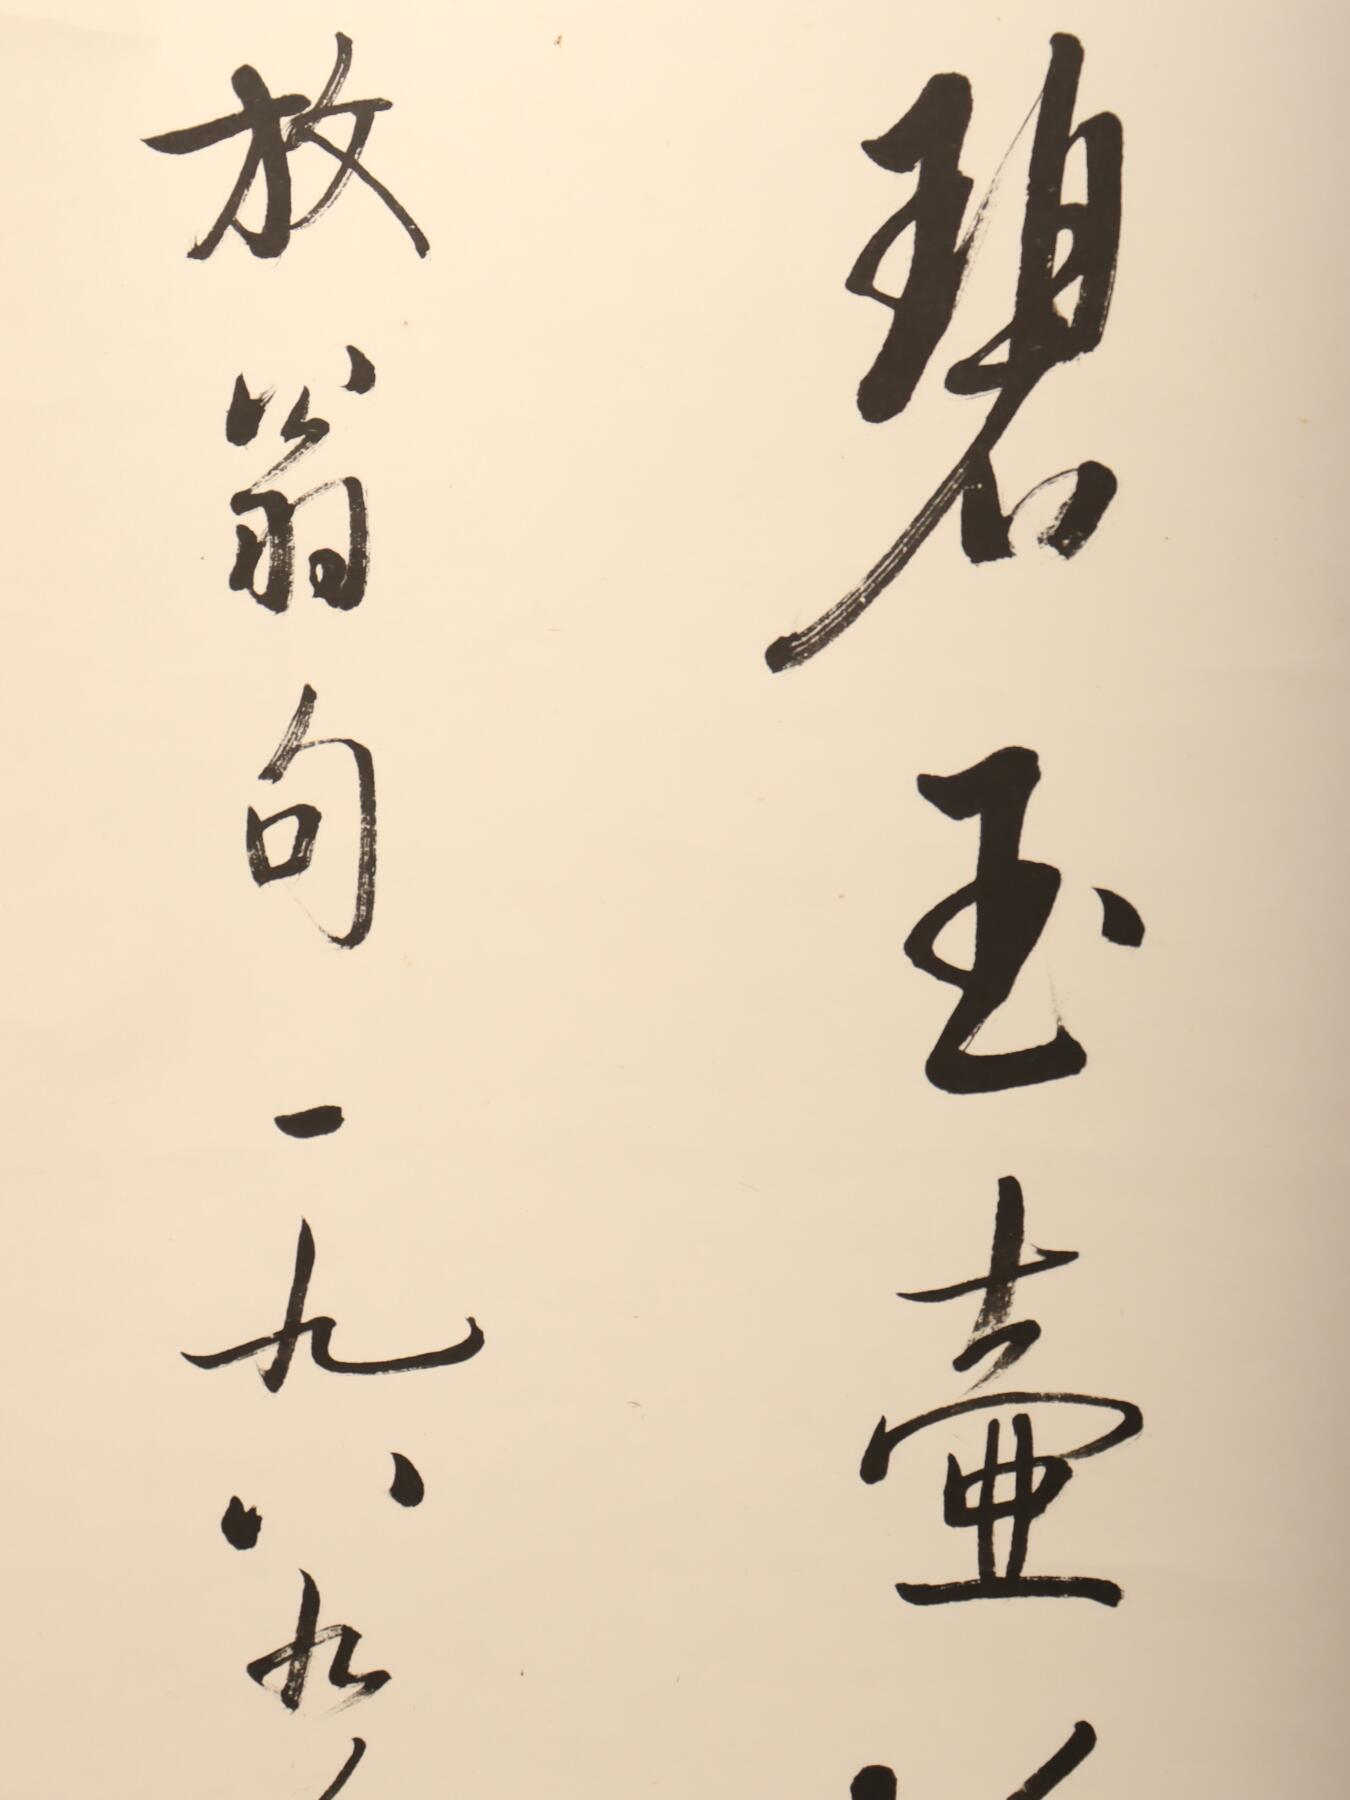 碧玉壺
放翁句一九八九